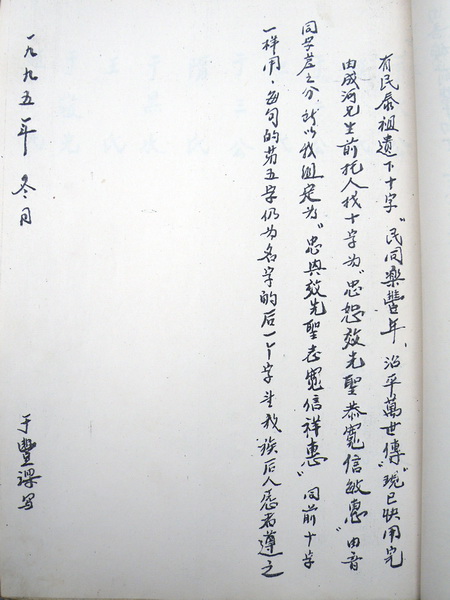 有民泰祖遺下十字"民同樂豐年，治平萬世傳"現已快用完
由成河兄生前托人找十字为"忠恕效先聖恭寬信敏惠"由音
同字差之分就以我组定为"忠與效先聖志寬信祥惠"同前十字
一样用，每句的第五字仍为名字的后一个字 我族后人愿者遵之
一九九五年 冬月
于豐 写